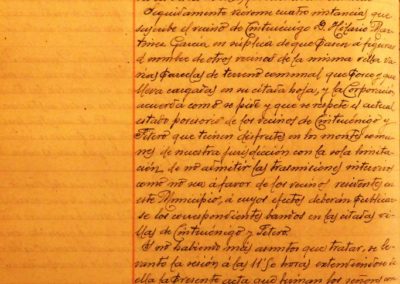 Seguidamente vieron cuatro instancias que
suscribe el vecino de D. Hilario Mar-
tinez Garcia en suplica de que pasen á figurar
á nombre de otros vecinos de la misma villa va-
rias parcelas de terreno comunal que posee y que
lleva cargadas en su citada hoja, y la Corporación
acuerda como se pide y que se respete el actual
estado posesorio de los vecinos de y
que tienen disfrute en los montes comu-
nes de nuestra jurisdicción con la sola limita-
ción de no admitir las trasmisiones
como no sea á favor de los vecinos residentes en
este Municipio, á cuyos efectos deberán publicar-
se los correspondientes bandos en las citadas vi-
llas de y
Y no habiendo más asuntos que tratar, se le-
vantó la sesión á las 11'50 horas extendiendose de
ella la presente acta que firman los señores